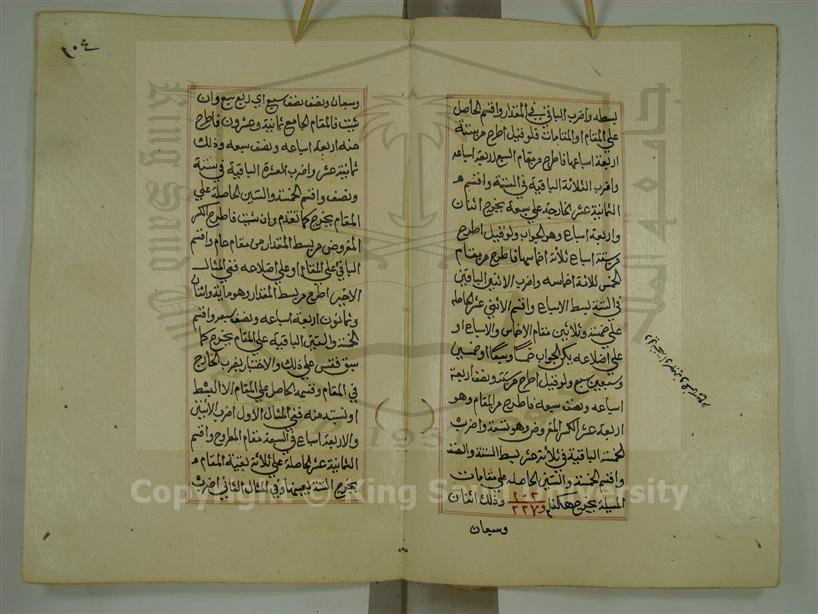 بسطه واضرب الباقي في المقدار واقسم الحاصل
على المقام او المقامات فلو قيل اطرح من ستة
اربعة اسباعها فاطرح من مقام السبع اربعة اسباعه
واضرب الثلاثة الباقية في الستة واقسم
الثمانية عشر الخارجة على سبعة يخرج اثنان
واربعة اسباع وهو الجواب ولو قيل اطرح
من ستة اسباع ثلاثة اخماسها فاطرح من مقام
الخمس ثلاثة اخماسه واضرب الاثنين الباقيين
في الستة بسط الاسباع واقسم الاثني عشر الحاصلة
على خمسة وثلاثين مقام الاخماس والاسباع او
على اضلاعه يكن الجواب خمسا وسبعا او خمسين
ولو قيل اطرح من ستة ونصف اربعة
اسباعه ونصف سبعه فاطرح من المقام وهو
اربعة عشر الكسر المفروض وهو تسعة واضرب
الخمسة الباقية في ثلاثة عشر بسط الستة والنصف
واقسم الخمسة والستين الحاصلة على مقامات
المسئلة يخرج هكذا وذلك اثنان
وسبعان
١٠٤
وسبعان ونصف نصف سبع اي ربع سبع وان
شئت فالمقام الجامع ثمانية وعشرون فاطرح
منه اربعة اسباعه ونصف سبعه وذلك
ثمانية عشر واضرب العشرة الباقية في ستة
ونصف واقسم الخمسة والستين الحاصلة على
المقام يخرج كما تقدم وان شئت فاطرح الكسر
المفروض من بسط المقدار من مقام عام واقسم
الباقي على المقام او على اضلاعه ففي المثال
الاخير اطرح من بسط المقدار وهو ماية واثنان
وثمانون اربعة اسباعه ونصف سبعه واقسم
الخمسة والستين الباقية على المقام يخرج كما
سبق فقس على ذلك والاختبار بضرب الخارج
في المقام وقسمة الحاصل على المقام الا البسط
او نسبته منه ففي المثال الاول اضرب الاثنين
والاربعة اسباع في السبعة مقام المطروح واقسم
الثمانية عشر الحاصلة على ثلاثة بقية المقام
يخرج الستة بعينها وفي المثال الثاني اضرب
Copyright © King Saud University
King Saud University
1957